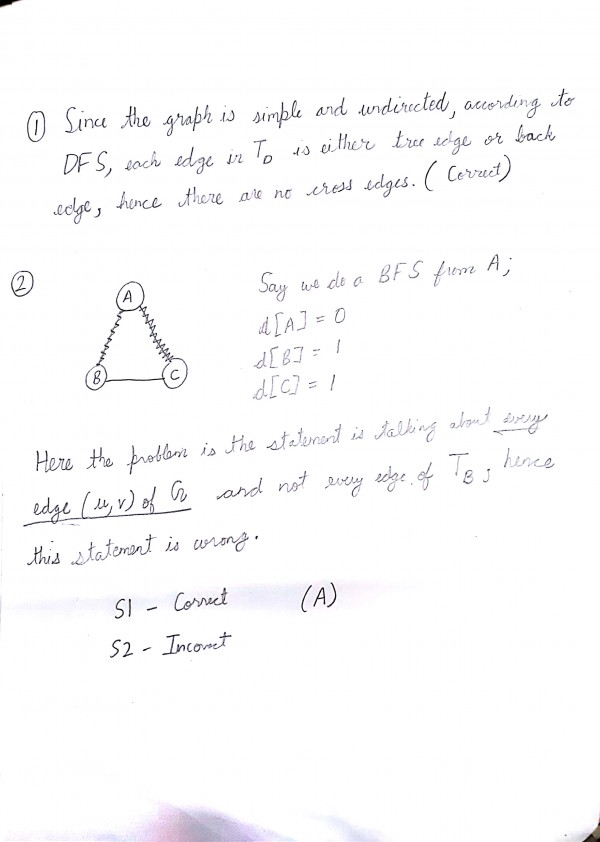 ① Since the graph is simple and undirected, according to
DFS, each edge in T_D is either tree edge or back
edge, hence there are no cross edges. ( Correct)
②
A
B
C
Say we do a BFS from A;
d[A] = 0
d[B] = 1
d[C] = 1
Here the problem is the statement is talking about every
edge (u,v) of G and not every edge of T_B; hence
this statement is wrong.
S1 - Correct (A)
S2 - Incorrect